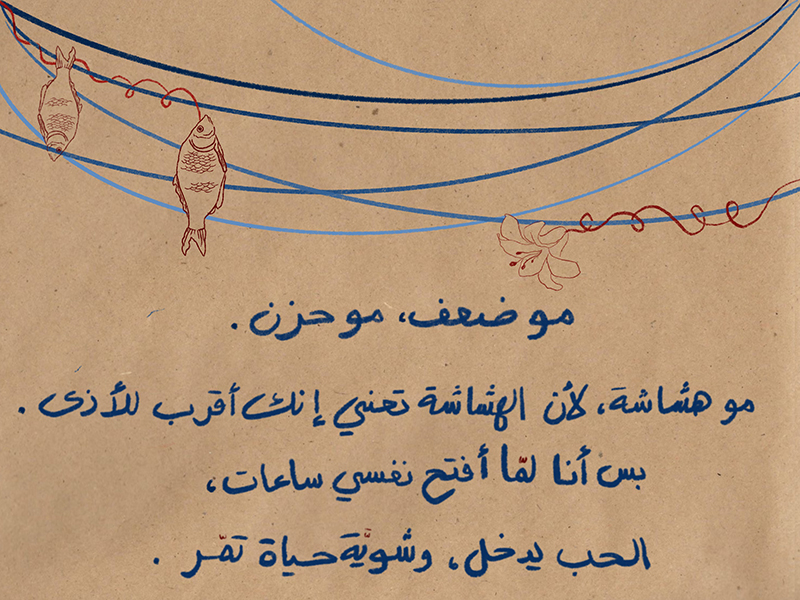 مو ضعف، مو حزن.
مو هشاشة، لأن الهشاشة تعني إنك أقرب للأذى.
بس أنا لمّا أفتح نفسي ساعات،
الحب يدخل، وشويّة حياة تمّر.